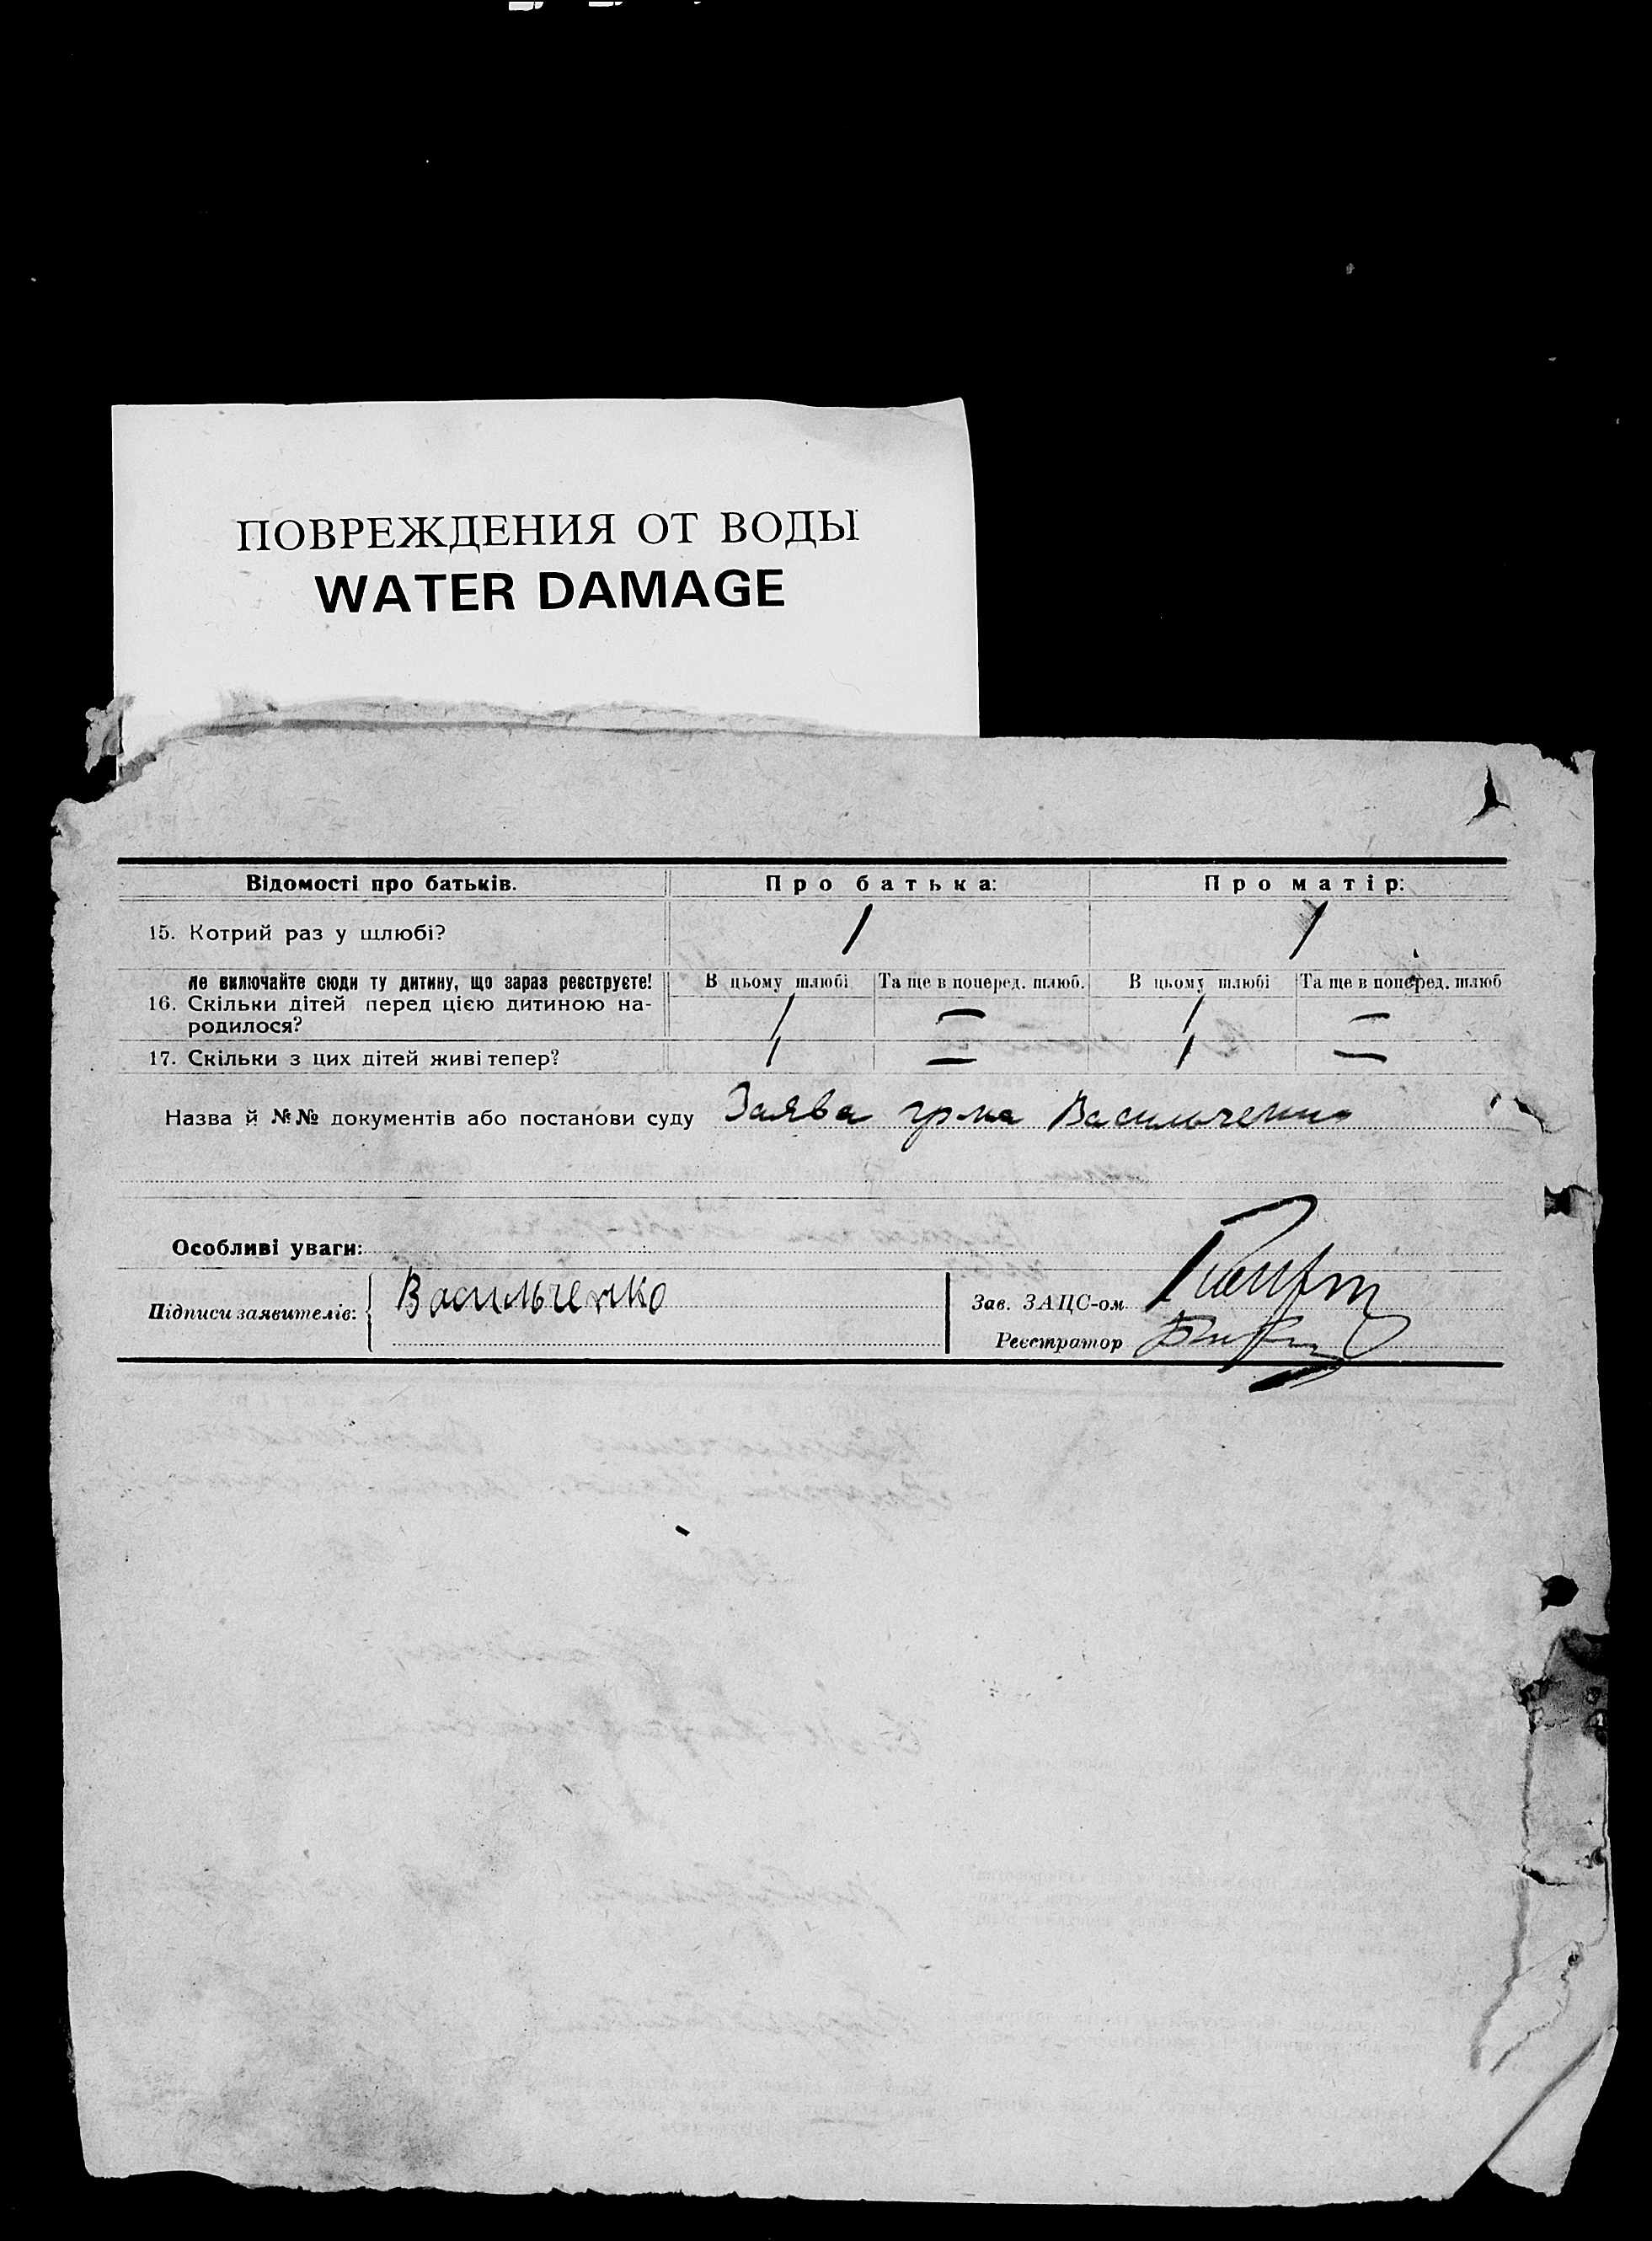 ПОВРЕЖДЕНИЯ ОТ ВОДЫ
WATER DAMAGE
Відомості про батьків. Про батька: Про матір:
15. Котрий раз у шлюбі? 1 1
Не включайте сюди ту дитину, що зараз реєструєте! В цьому шлюбі Та ще в поперед. шлюб. В цьому шлюбі Та ще в поперед. шлюб
16. Скільки дітей перед цією дитиною на-
родилося? 1 — 1 —
17. Скільки з цих дітей живі тепер? 1 — 1 —
Назва й №№ документів або постанови суду Заява гр-на Васильченко
Особливі уваги:
Підписи заявителів: Васильченко
Зав. ЗАЦС-ом
Реєстратор